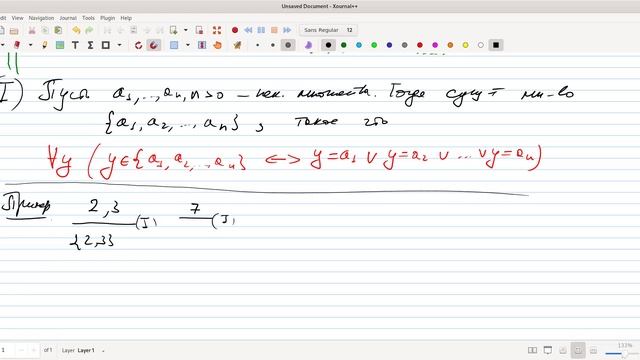 Unsaved Document - Xournal++
Edit View Navigation Journal Tools Plugin Help
Sans Regular 12
I) Пусть a₁,...,aₙ, n>0 – нек. множества. Тогда сущ-т мн-во
{a₁, a₂, ..., aₙ}, такое что
∀y (y∈{a₁, a₂, ..., aₙ} ⟷ y=a₁ ∨ y=a₂ ∨ ... ∨ y=aₙ)
Пример 2,3 (I) 7 (I)
{2,3}
1 of 1 Layer Layer 1 133%